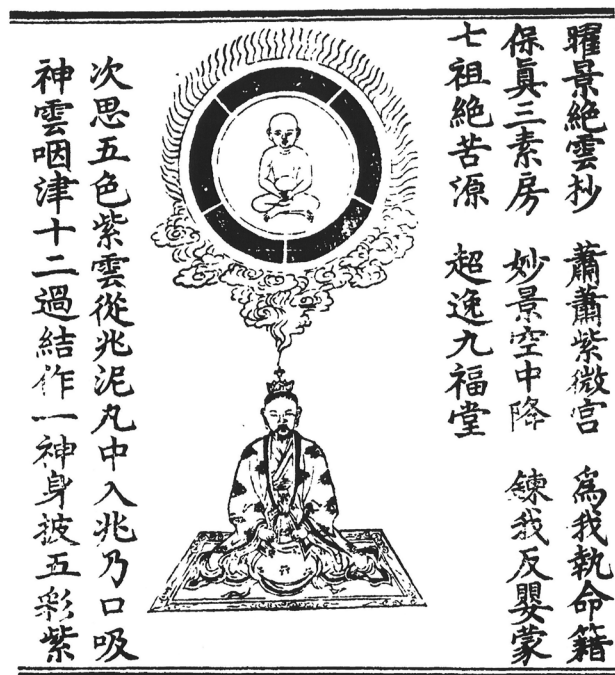 曜景絶雲抄　蕭蕭紫微宫　爲我執命籍
保眞三素房　妙景空中降　鍊我反嬰蒙
七祖絶苦源　超逸九福堂
次思五色紫雲從兆泥丸中入兆乃口吸
神雲咽津十二過結作一神身披五彩紫